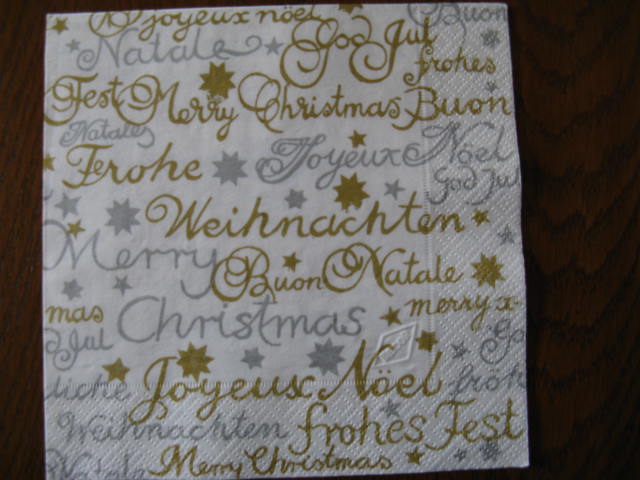 joyeux nöel Buon
Natale God Jul
frohes
Fest Merry Christmas Buon
Natale
Frohe Joyeux Nöel
God Jul
Weihnachten
Merry Buon Natale
mas Christmas merry x-
Jul Go
liche Joyeux Nöel fröh
Weihnachten frohes Fest
Natale Merry Christmas